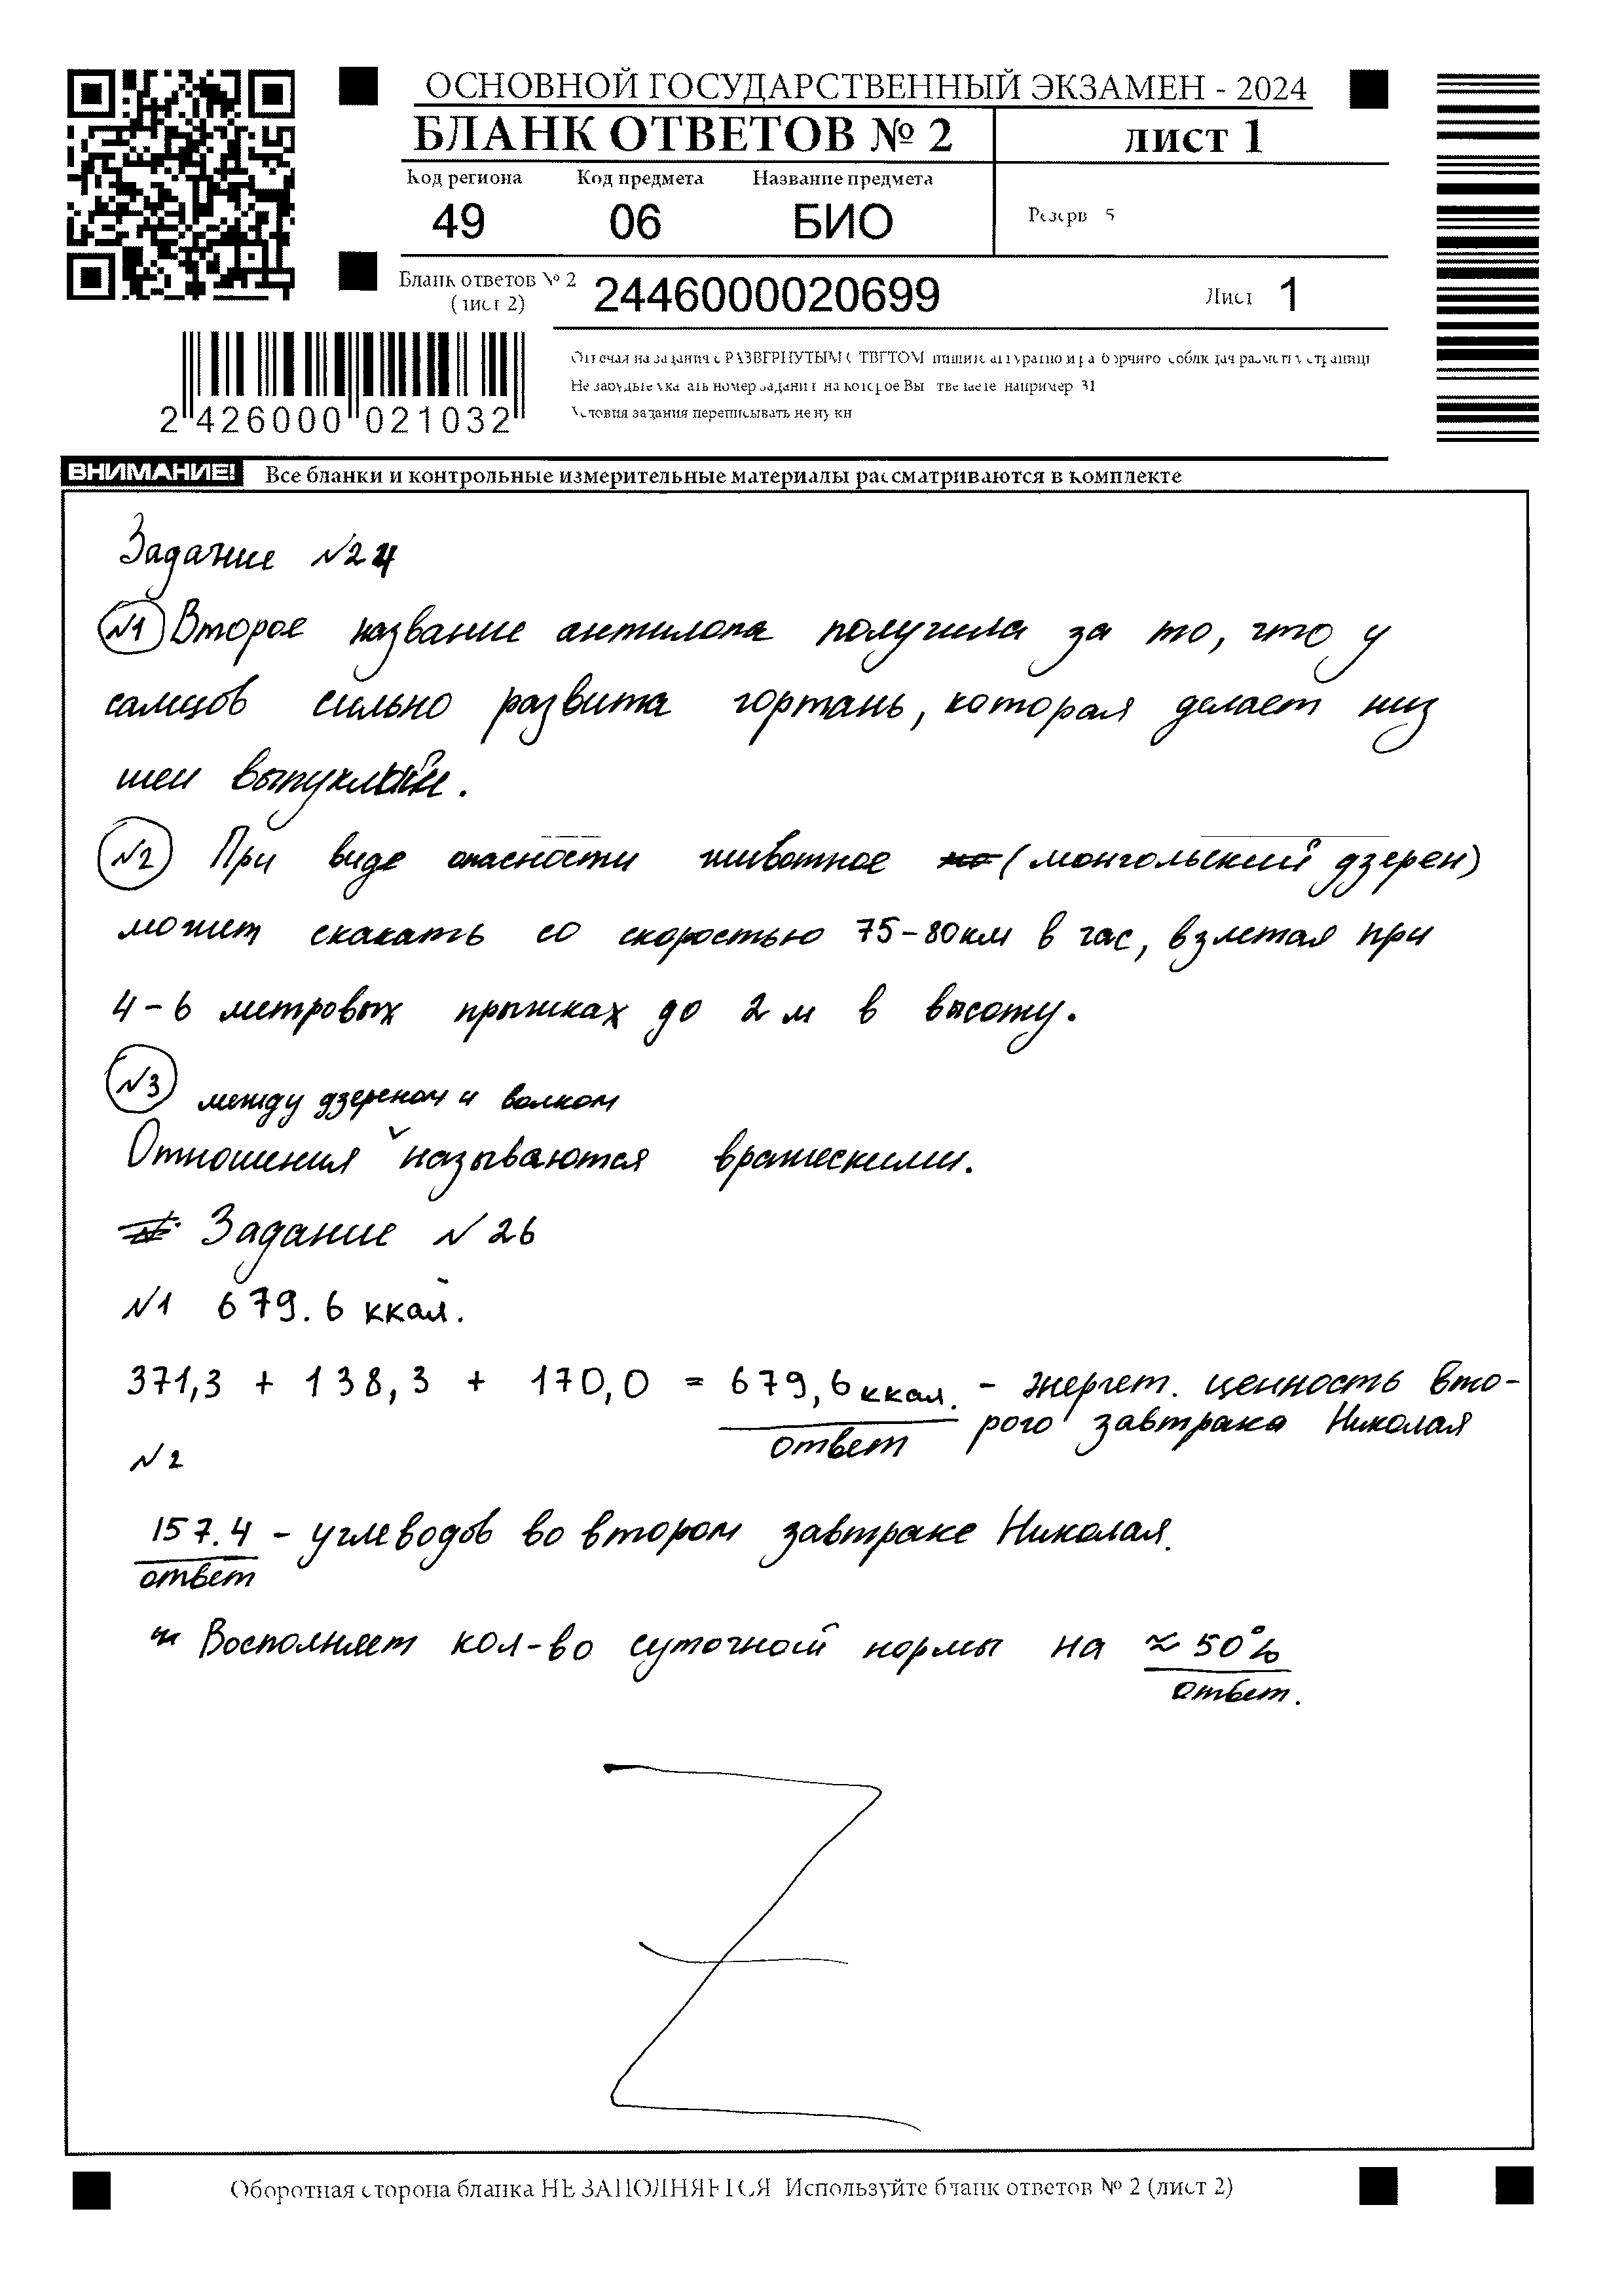 ОСНОВНОЙ ГОСУДАРСТВЕННЫЙ ЭКЗАМЕН - 2024
БЛАНК ОТВЕТОВ № 2
лист 1
Код региона Код предмета Название предмета
49 06 БИО
Резерв 5
Бланк ответов № 2 (лист 2) 2446000020699
Лист 1
2 426000 021032
Отвечая на задания с РАЗВЕРНУТЫМ ОТВЕТОМ пишите аккуратно и разборчиво соблюдая разметку страницы
Не забудьте указать номер задания на которое Вы отвечаете например 31
Условия задания переписывать не нужно
ВНИМАНИЕ! Все бланки и контрольные измерительные материалы рассматриваются в комплекте
Задание №24
№1 Второе название антилопа получила за то, что у
самцов сильно развита гортань, которая делает низ
шеи выпуклым.
№2 При виде опасности животное (монгольский дзерен)
может скакать со скоростью 75-80км в час, взлетая при
4-6 метровых прыжках до 2 м в высоту.
№3
между дзереном и волком
Отношения называются вражескими.
Задание №26
№1 679.6 ккал.
371,3 + 138,3 + 170,0 = 679,6 ккал. - энергет. ценность вто-
ответ рого завтрака Николая
№2
157.4 - углеводов во втором завтраке Николая.
ответ
Восполняет кол-во суточной нормы на ≈ 50%
ответ.
Оборотная сторона бланка НЕ ЗАПОЛНЯЕТСЯ Используйте бланк ответов № 2 (лист 2)